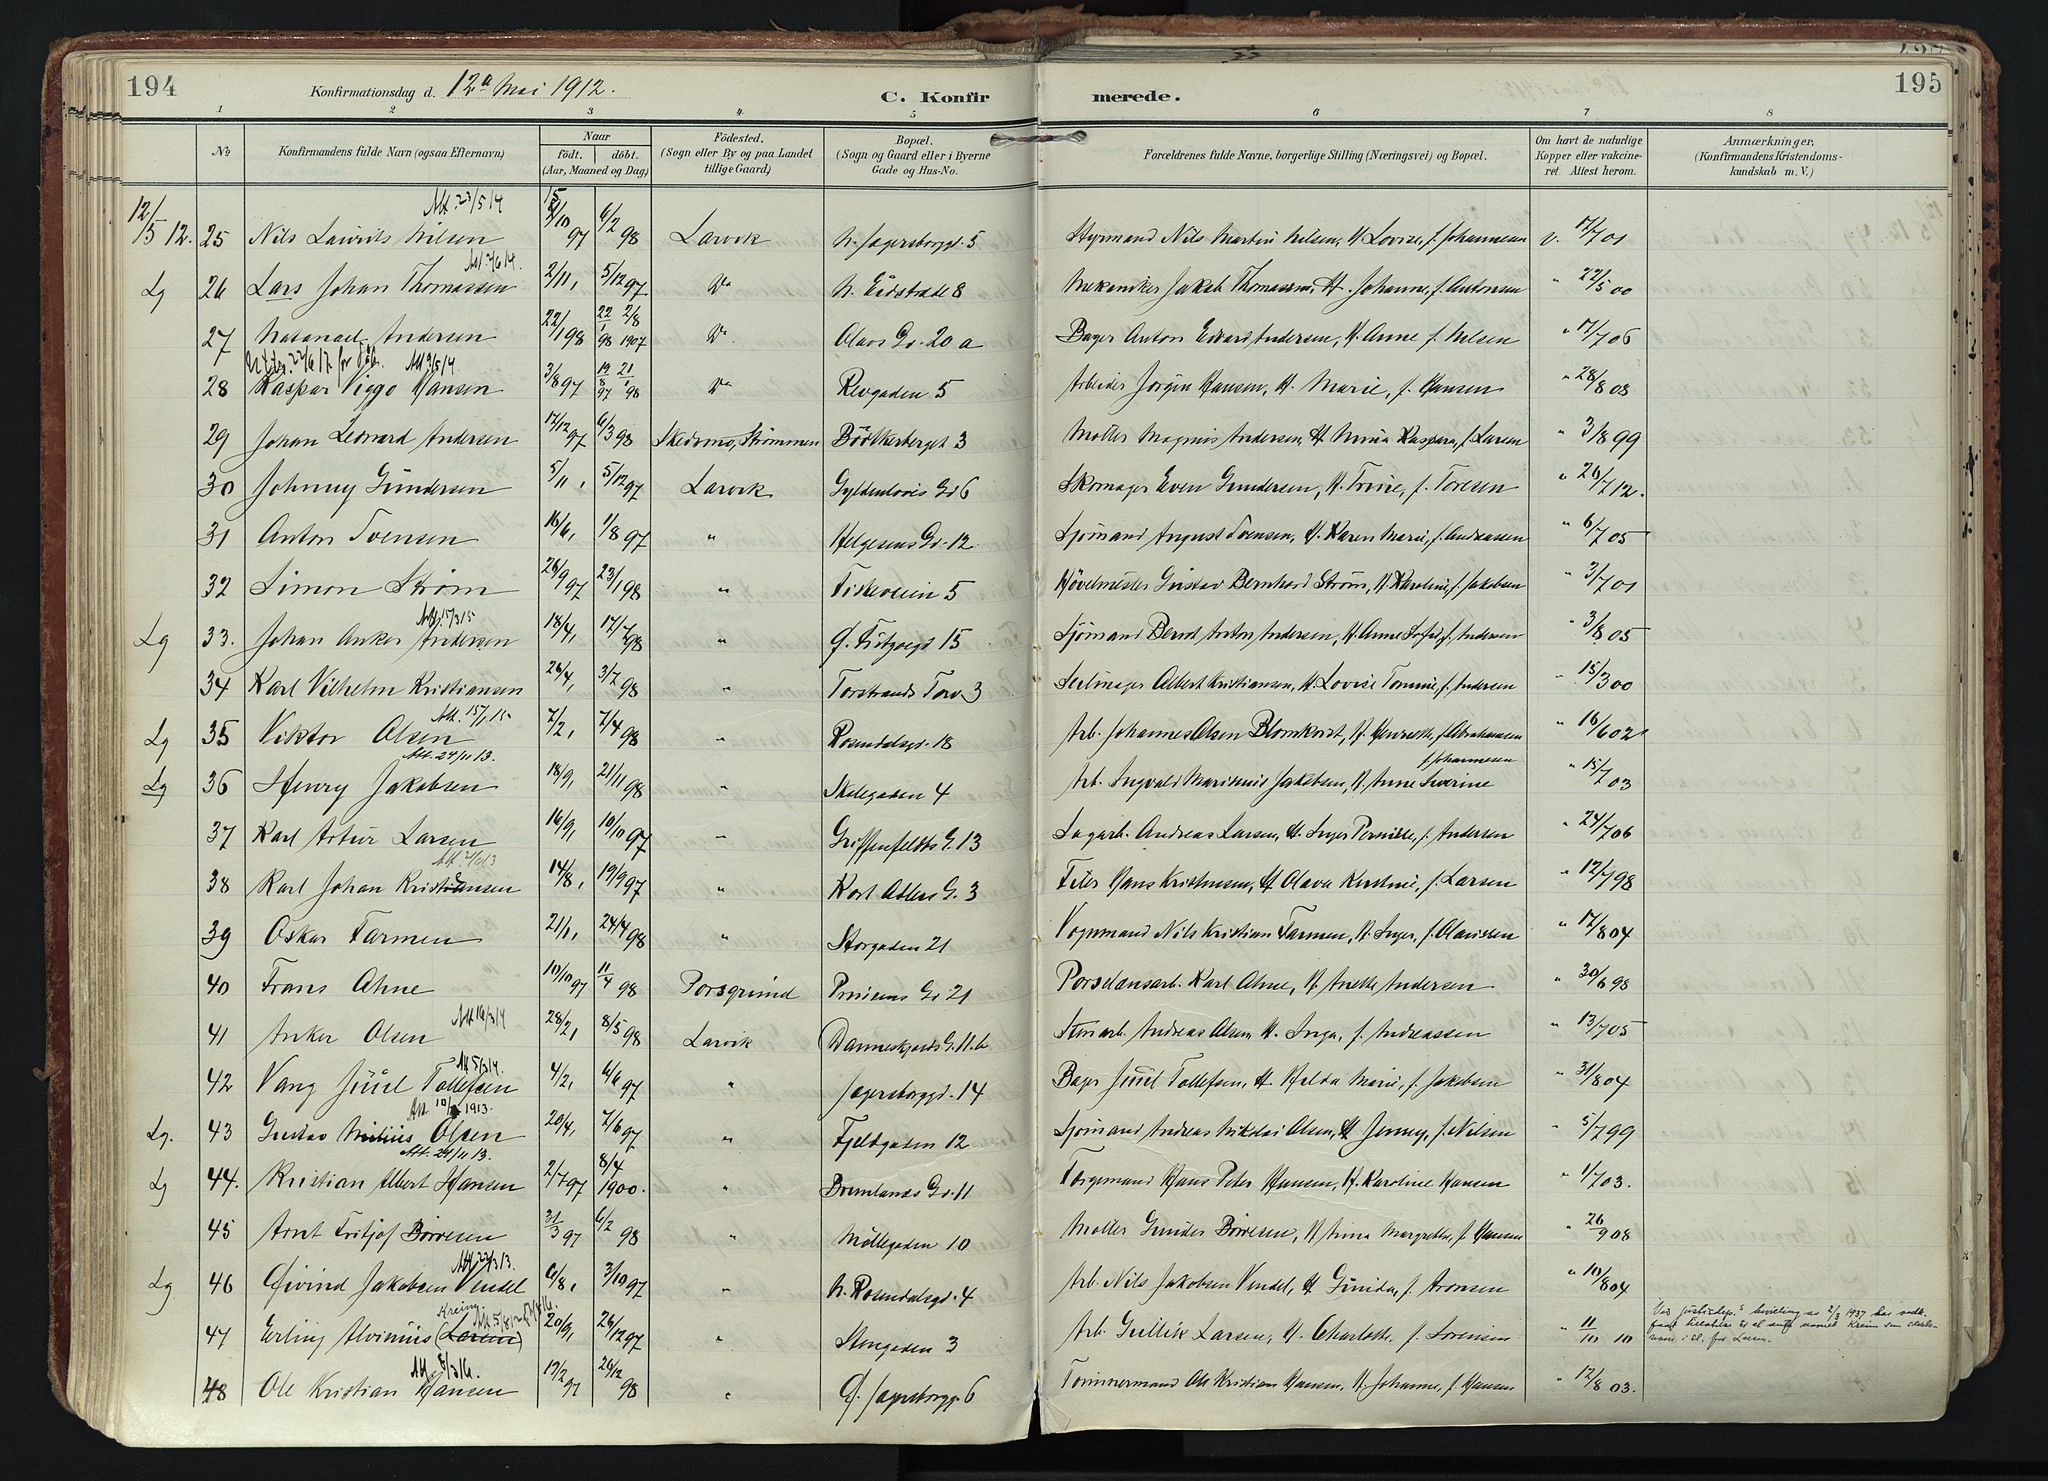 194
Konfirmationsdag d. 12a Mai 1912.
C. Konfir
merede.
195
1 2 3 4. 5 6 7 8
No
Konfirmandens fulde Navn (ogsaa Efternavn)
Naar
født. døbt.
(Aar, Maaned og Dag)
Födested.
(Sogn eller By og paa Landet
tillige Gaard)
Bopæl.
(Sogn og Gaard eller i Byerne
Gade og Hus-No.
Forældrenes fulde Navne, borgerlige Stilling (Næringsvei) og Bopæl.
Om havt de naturlige
Kopper eller vakcine-
ret. Attest herom.
Anmærkninger.
(Konfirmandens Kristendoms-
kundskab m. V.)
Att. 23/5 14
12/5 12. 25 Nils Laurits Nilsen 10 97 6/2 98 Larvik N. Jegersborggd. 5 Styrmand Nils Martin Nilsen, H. Lovise, f. Johannesen v. 17/7 01
Lg 26 Lars Johan Thomassen 2/11, 5/12 97 Do N. Eidstrade 8 Mekaniker Jakob Thomassen, H. Johanne, f. Antonsen " 22/5 00
27 Natanael Andersen 22/1 98 22/1 98 2/8 1907 Do. Olavs Gd. 20 a Bager Anton Edvard Andersen, H. Anne f. Nilsen " 17/7 06
28 Kaspar Viggo Hansen 3/8 97 19/8 97 21/1 98 Do Revgaden 5 Arbeider Jörgen Hansen, H. Marie, f. Hansen " 28/8 03
29 Johan Leonard Andersen 17/12 97 6/3 98 Skedsmo, Strømmen Bødkerberget 3 Møller Magnus Andersen, H. Mina Kaspara, f. Larsen " 3/8 99
30 Johnny Gundersen 5/11, 5/12 97 Larvik Gyldenløves Gd 6 Skomager Even Gundersen, H. Trine, f. Toresen " 26/7 12.
31 Anton Svensen 16/6, 1/8 97 " Helgesens Gd. 12 Sjømand August Svensen, H. Karen Marie, f. Andreassen " 6/7 05
32 Simon Strøm 26/9 97 23/1 98 " Fiskeveien 5 Høvelmester Gustav Bernhard Strøm, H. Karoline, f. Jakobsen " 3/7 01
Lg 33. Johan Anker Andersen Att. 15/3 15 18/4, 17/7 98 " Ø. Fritzøegd 15 Sjømand Bernt Anton Andersen, H. Anne Sofie, f. Andersen " 3/8 05
34 Karl Vilhelm Kristiansen 26/4, 3/7 98 " Torstrands Torv 3 Seilmager Albert Kristiansen, H. Lovise Tomine, f. Andersen " 15/3 00
Lg 35 Viktor Olsen Att. 15/1 15 7/2, 7/4 98 " Rosendalsgd. 18 Arb. Johannes Olsen Blomkvist, H. Henriette, f. Abrahamsen " 16/6 02
Att. 24/11 13.
Lg 36 Henry Jakobsen 18/9, 21/11 98 " Skolegaden 4 Arb. Ingvald Marinius Jakobsen, H. Anne Severine f. Johannesen " 15/7 03
37 Karl Artur Larsen 16/9, 10/10 97 " Griffenfeldts G. 13 Sagarb. Andreas Larsen, H. Inger Pernille, f. Andersen " 24/7 06
38 Karl Johan Kristiansen 14/8, 19/9 97 " Karl Adlers G. 3 Feier Hans Kristensen, H. Olava Kirstine, f. Larsen " 12/7 98
39 Oskar Farmen 21/1, 24/4 98 " Storgaden 21 Vognmand Nils Kristian Farmen, H. Inger, f. Olavssen " 17/8 04
40 Frans Ahne 10/10 97 11/4 98 Porsgrund Prinsens Gd 21 Porselansarb. Karl Ahne, H. Anette Andersen " 30/6 98
41 Anker Olsen Att 16/3 14 28/2, 8/5 98 Larvik Danneskjolds G. 11. b Stenarb. Andreas Olsen, H. Inga, f. Andreassen " 13/7 05
Att 5/3 14.
42 Vang Juul Tollefsen 4/2, 6/6 97 " Jegersborggd. 14 Bager Juul Tollefsen, H. Hilda Marie, f. Jakobsen " 31/8 04
Lg. 43 Gustav Milius Olsen 20/4, 7/6 97 " Fjeldgaden 12 Sjømand Andreas Nikolai Olsen, H. Jenny, f. Nilsen " 5/7 99
Att. 24/11 13.
Lg 44. Kristian Albert Hansen 2/7 97 8/4 1900. " Bremlands Gd. 11 Færgemand Hans Peter Hansen, H. Karoline Hansen " 1/7 03.
45 Arnt Fritjof Børresen 31/3 97 6/2 98 " Möllegaden 10 Møller Gunder Børresen, H. Anna Margrethe, f. Hansen " 26/9 08
Lg 46 Øivind Jakobsen Vendel 6/8, 3/10 97 " N. Rosendalsgd. 4 Arb. Nils Jakobsen Vendel, H. Gunida, f. Aronsen " 10/8 04
47 Erling Alvinius (Larsen) Kreim 20/9, 26/12 97 " Stengaden 3 Arb. Gullik Larsen, H. Charlotte, f. Sorensen " 11/10 10
Ved justisdep.s bevilling av 2/3 1937 har
48 Ole Kristian Hansen 17/2 97 26/12 98 " Ø. Jegersborgg. 6 Tømmermand Ole Kristian Hansen, H. Johanne, f. Hansen " 12/8 03.